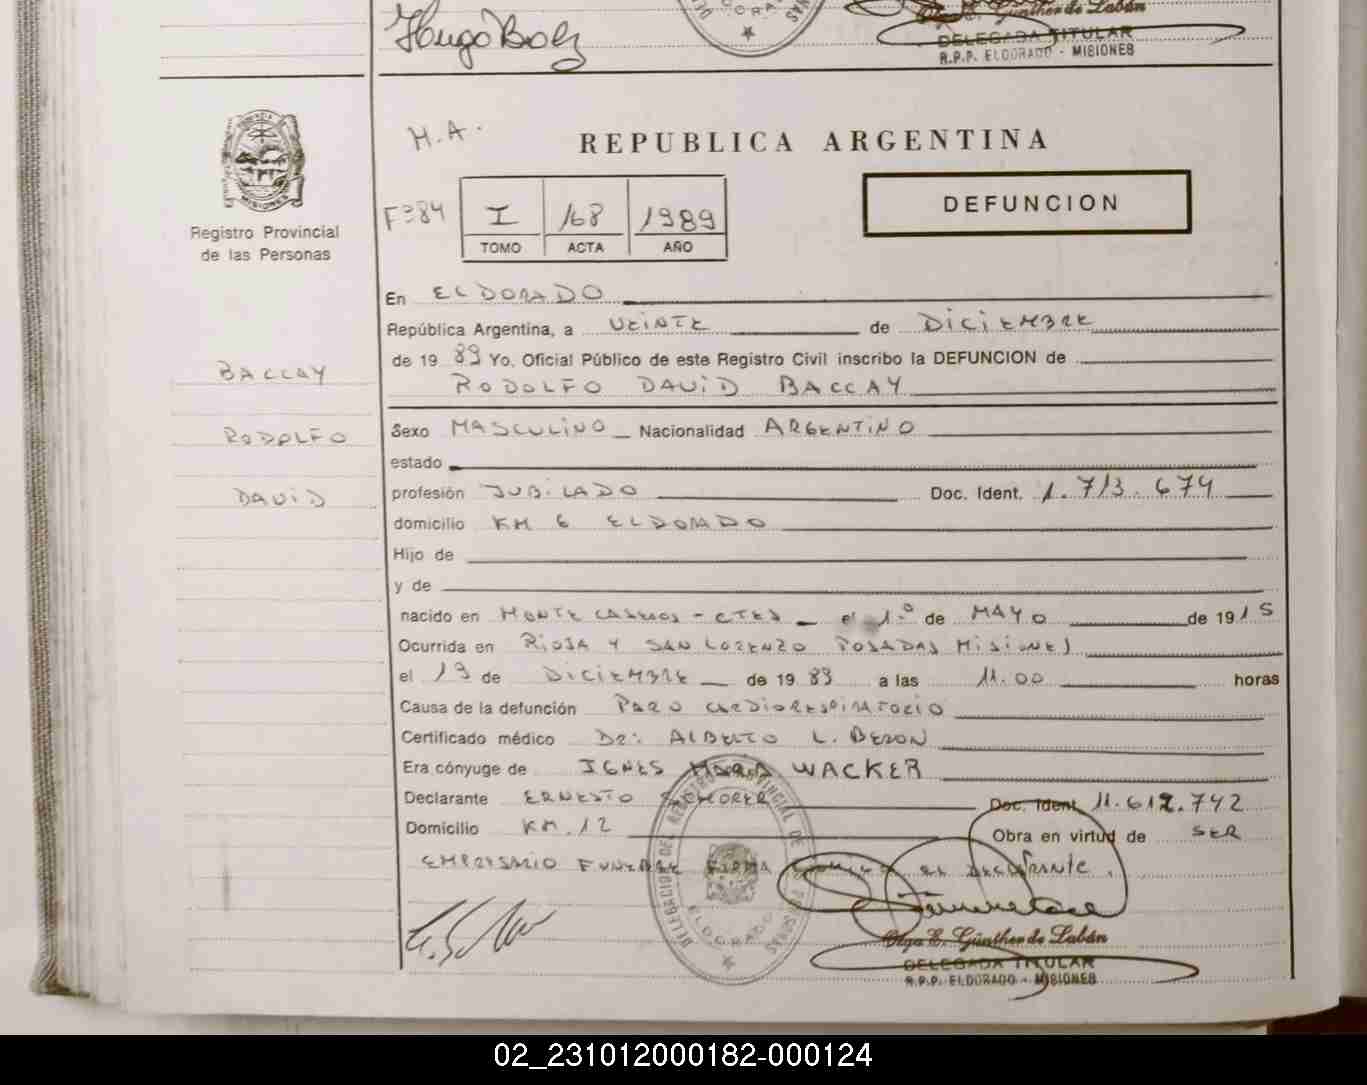 Hugo Bolz
Olga E. Günther de Labán
DELEGADA TITULAR
R.P.P. ELDORADO - MISIONES
PROVINCIA DE
MISIONES
Registro Provincial
de las Personas
BACCAY
RODOLFO
DAVID
M.A.
REPUBLICA ARGENTINA
Fº84 I 168 1989
TOMO ACTA AÑO
DEFUNCION
En ELDORADO
República Argentina, a VEINTE de DICIEMBRE
de 19 89 Yo, Oficial Público de este Registro Civil inscribo la DEFUNCION de
RODOLFO DAVID BACCAY
Sexo MASCULINO Nacionalidad ARGENTINO
estado
profesión JUBILADO Doc. Ident. 1.713.674
domicilio KM 6 ELDORADO
Hijo de
y de
nacido en MONTE CASEROS - CTES el 1º de MAYO de 1915
Ocurrida en RIOJA Y SAN LORENZO POSADAS MISIONES
el 19 de DICIEMBRE de 19 89 a las 11.00 horas
Causa de la defunción PARO CARDIORESPIRATORIO
Certificado médico DR: ALBERTO L. BERON
Era cónyuge de IGNES MARA WACKER
Declarante ERNESTO SCHORER Doc. Ident. 11.612.742
Domicilio KM.12 Obra en virtud de SER
EMPRESARIO FUNEBRE FIRMA EL DECLARANTE.
DELEGACION DEL REGISTRO PROVINCIAL DE LAS PERSONAS
ELDORADO
Olga E. Günther de Labán
DELEGADA TITULAR
R.P.P. ELDORADO - MISIONES
02_231012000182-000124